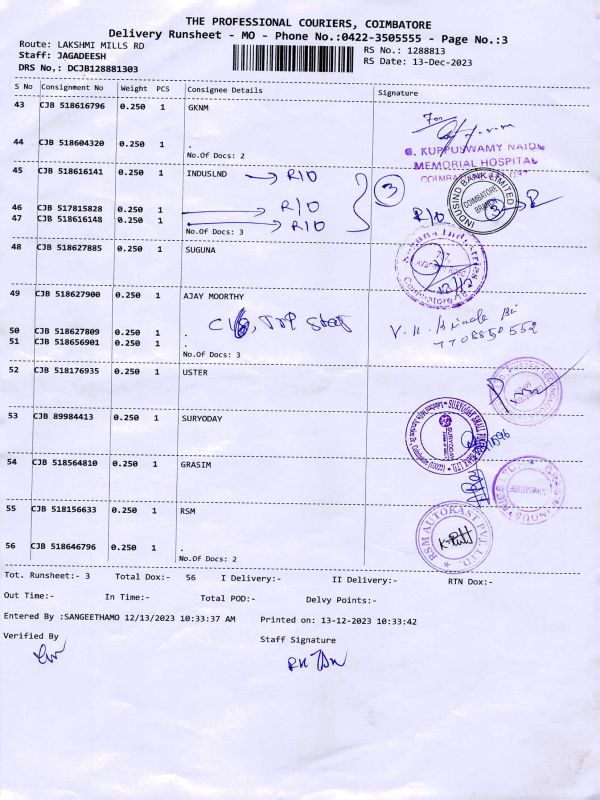 THE PROFESSIONAL COURIERS, COIMBATORE
Delivery Runsheet - MO - Phone No.:0422-3505555 - Page No.:3
Route: LAKSHMI MILLS RD RS No.: 1288813
Staff: JAGADEESH RS Date: 13-Dec-2023
DRS No.: DCJB128881303
S No Consignment No Weight PCS Consignee Details Signature
43 CJB 518616796 0.250 1 GKNM
For
44 CJB 518604320 0.250 1 .
No.Of Docs: 2
G. KUPPUSWAMY NAIDU
MEMORIAL HOSPITAL
45 CJB 518616141 0.250 1 INDUSLND R/O
3
INDUSIND BANK LIMITED
COIMBATORE
BRANCH
46 CJB 517815828 0.250 1 R/O
47 CJB 518616148 0.250 1 R/O
R/O 3
No.Of Docs: 3
48 CJB 518627885 0.250 1 SUGUNA
Suguna Industries
49 CJB 518627900 0.250 1 AJAY MOORTHY
50 CJB 518627809 0.250 1 .
51 CJB 518656901 0.250 1 .
No.Of Docs: 3
7708550552
52 CJB 518176935 0.250 1 USTER
53 CJB 89984413 0.250 1 SURYODAY
SURYODAY SMALL FINANCE BANK LTD.
SURYODAY
54 CJB 518564810 0.250 1 GRASIM
55 CJB 518156633 0.250 1 RSM
RSM AUTOKAST PVT. LTD.
56 CJB 518646796 0.250 1 .
No.Of Docs: 2
Tot. Runsheet:- 3 Total Dox:- 56 I Delivery:- II Delivery:- RTN Dox:-
Out Time:- In Time:- Total POD:- Delvy Points:-
Entered By :SANGEETHAMO 12/13/2023 10:33:37 AM Printed on: 13-12-2023 10:33:42
Verified By Staff Signature